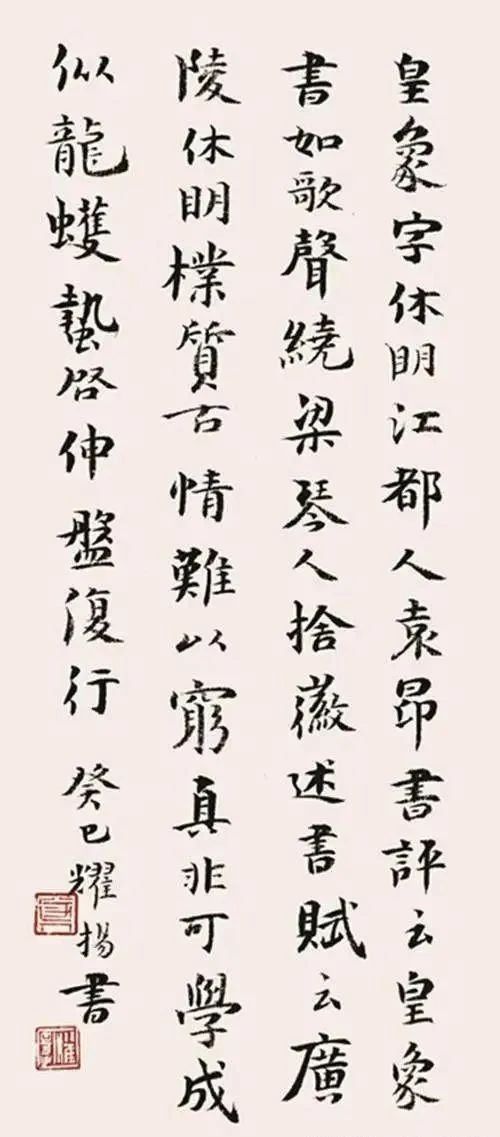 皇象字休明江都人袁昂書評云皇象
書如歌聲繞梁琴人捨徽述書賦云廣
陵休明樸質古情難以窮真非可學成
似龍蠖蟄啓伸盤復行
癸巳耀揚書